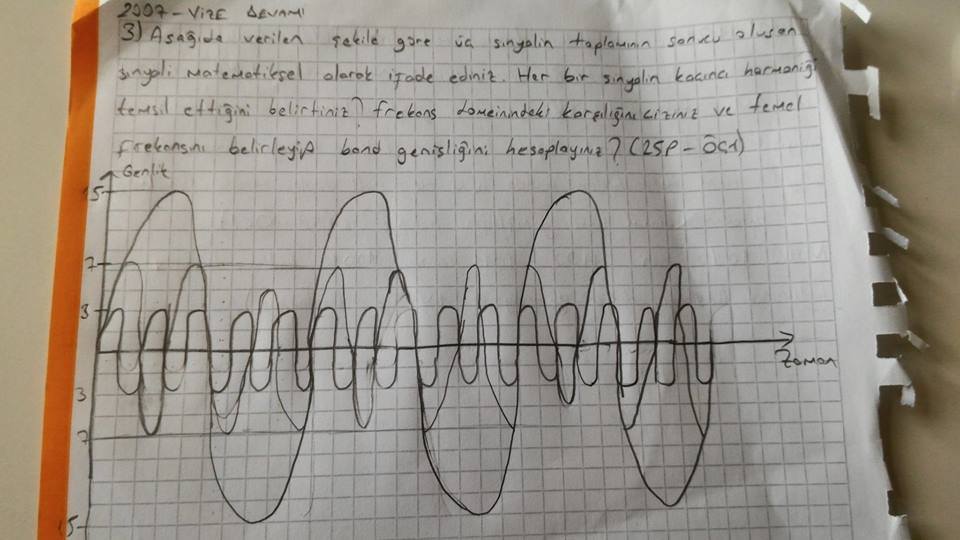 2007 - VİZE DEVAMI
3) Aşağıda verilen şekile göre üç sinyalin toplamının sonucu oluşan
sinyali matematiksel olarak ifade ediniz. Her bir sinyalin kaçıncı harmoniği
temsil ettiğini belirtiniz? frekans domeinindeki karşılığını çiziniz ve temel
frekansını belirleyip band genişliğini hesaplayınız? (25P - ÖÇ1)
Genlik
15
7
3
Zaman
3
7
15